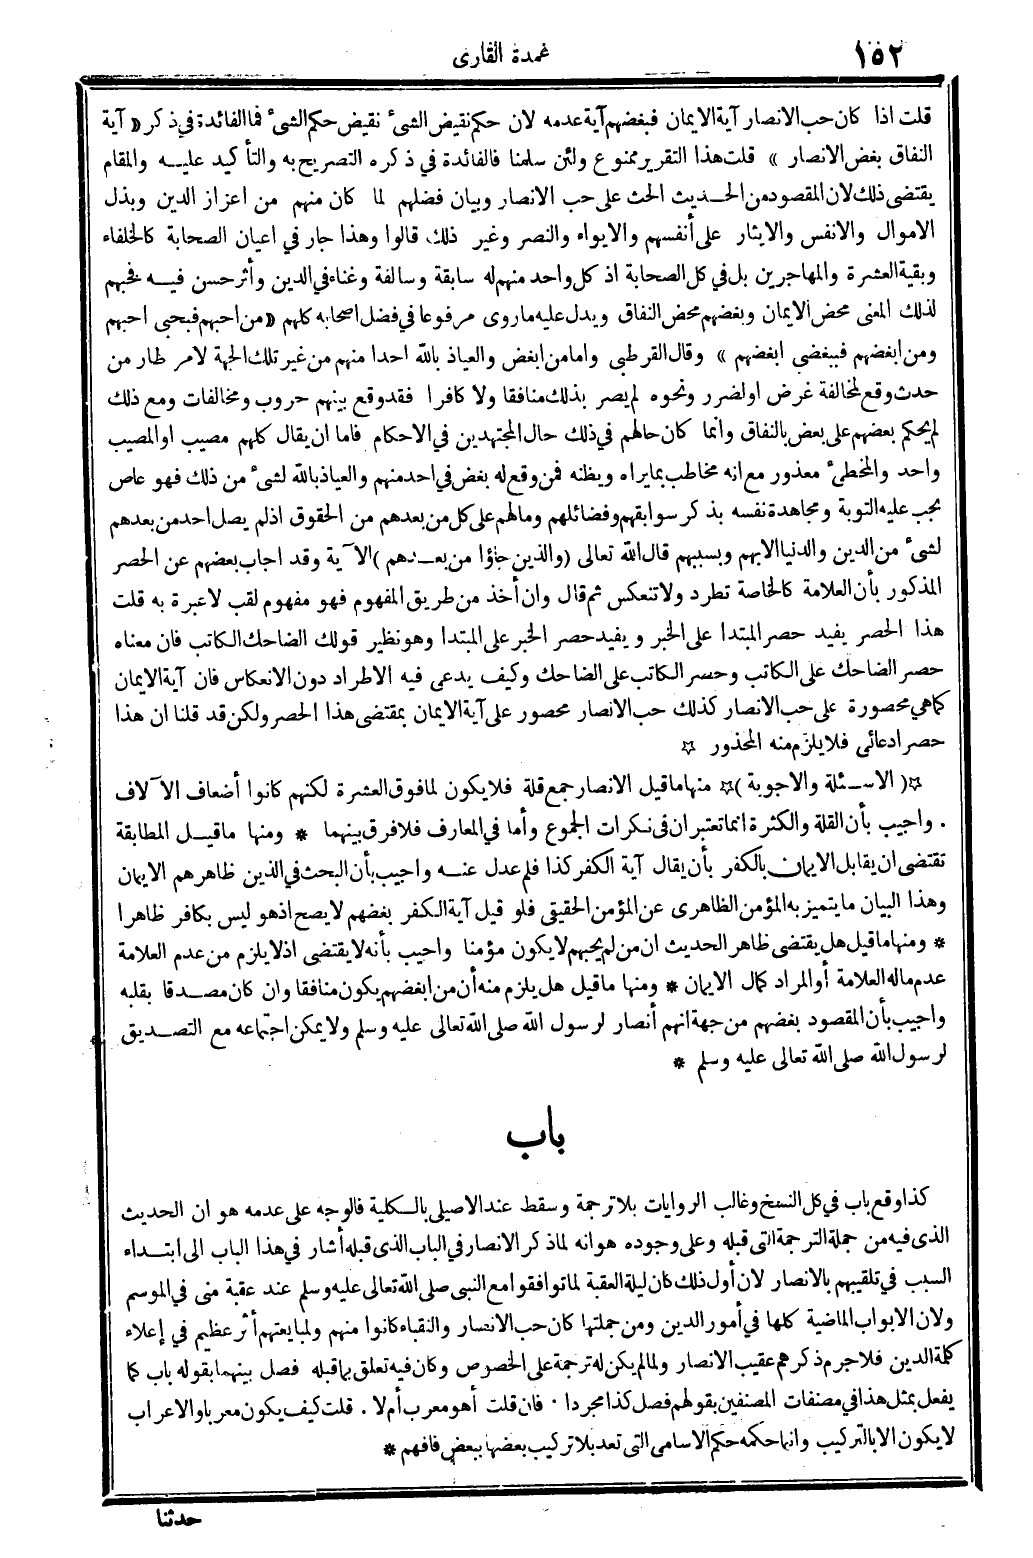 ١٥٢
عمدة القارى
قلت اذا كان حب الانصار آية الايمان فبغضهم آية عدمه لان حكم نقيض الشىء نقيض حكم الشىء فما الفائدة فى ذكر « آية
النفاق بغض الانصار » قلت هذا التقرير ممنوع ولئن سلمنا فالفائدة فى ذكره التصريح به والتأكيد عليه والمقام
يقتضى ذلك لان المقصود من الحديث الحث على حب الانصار وبيان فضلهم لما كان منهم من اعزاز الدين وبذل
الاموال والانفس والايثار على أنفسهم والايواء والنصر وغير ذلك قالوا وهذا جار في اعيان الصحابة كالخلفاء
وبقية العشرة والمهاجرين بل في كل الصحابة اذ كل واحد منهم له سابقة وسالفة وغناء في الدين وأثر حسن فيه فحبهم
لذلك المعنى محض الايمان وبغضهم محض النفاق ويدل عليه ماروى مرفوعا في فضل اصحابه كلهم « من احبهم فبحبى احبهم
ومن ابغضهم فببغضى ابغضهم » وقال القرطبى وامامن ابغض والعياذ بالله احدا منهم من غير تلك الجهة لامر طار من
حدث وقع لمخالفة غرض او لضرر ونحوه لم يصر بذلك منافقا ولا كافرا فقد وقع بينهم حروب ومخالفات ومع ذلك
لم يحكم بعضهم على بعض بالنفاق وانما كان حالهم في ذلك حال المجتهدين في الاحكام فاما ان يقال كلهم مصيب او المصيب
واحد والمخطىء معذور مع انه مخاطب بما يراه ويظنه فمن وقع له بغض في احد منهم والعياذ بالله لشىء من ذلك فهو عاص
يجب عليه التوبة ومجاهدة نفسه بذكر سوابقهم وفضائلهم ومالهم على كل من بعدهم من الحقوق اذلم يصل احد من بعدهم
لشىء من الدين والدنيا الا بهم وبسببهم قال الله تعالى (والذين جاؤا من بعدهم) الآية وقد اجاب بعضهم عن الحصر
المذكور بأن العلامة كالخاصة تطرد ولا تنعكس ثم قال وان أخذ من طريق المفهوم فهو مفهوم لقب لاعبرة به قلت
هذا الحصر يفيد حصر المبتدا على الخبر ويفيد حصر الخبر على المبتدا وهو نظير قولك الضاحك الكاتب فان معناه
حصر الضاحك على الكاتب وحصر الكاتب على الضاحك وكيف يدعى فيه الاطراد دون الانعكاس فان آية الايمان
كماهي محصورة على حب الانصار كذلك حب الانصار محصور على آية الايمان بمقتضى هذا الحصر ولكن قد قلنا ان هذا
حصر ادعائى فلا يلزم منه المحذور ☆
☆( الاسئلة والاجوبة )☆ منها ماقيل الانصار جمع قلة فلا يكون لمافوق العشرة لكنهم كانوا أضعاف الآلاف
. واجيب بأن القلة والكثرة انما تعتبران فى نكرات الجموع وأما في المعارف فلافرق بينهما * ومنها ماقيل المطابقة
تقتضى ان يقابل الايمان بالكفر بأن يقال آية الكفر كذا فلم عدل عنه واجيب بأن البحث في الذين ظاهرهم الايمان
وهذا البيان ما يتميز به المؤمن الظاهرى عن المؤمن الحقيقى فلو قيل آية الكفر بغضهم لا يصح اذهو ليس بكافر ظاهرا
* ومنها ماقيل هل يقتضى ظاهر الحديث ان من لم يحبهم لا يكون مؤمنا واجيب بأنه لا يقتضى اذ لا يلزم من عدم العلامة
عدم ماله العلامة أو المراد كمال الايمان * ومنها ماقيل هل يلزم منه أن من ابغضهم يكون منافقا وان كان مصدقا بقلبه
واجيب بأن المقصود بغضهم من جهة انهم أنصار لرسول الله صلى الله تعالى عليه وسلم ولا يمكن اجتماعه مع التصديق
لرسول الله صلى الله تعالى عليه وسلم *
باب
كذا وقع باب في كل النسخ وغالب الروايات بلا ترجمة وسقط عند الاصيلى بالكلية فالوجه على عدمه هو ان الحديث
الذى فيه من جملة الترجمة التى قبله وعلى وجوده هو انه لماذكر الانصار في الباب الذى قبله أشار في هذا الباب الى ابتداء
السبب في تلقيبهم بالانصار لان أول ذلك كان ليلة العقبة لما توافقوا مع النبى صلى الله تعالى عليه وسلم عند عقبة منى في الموسم
ولان الابواب الماضية كلها في أمور الدين ومن جملتها كان حب الانصار والنقباء كانوا منهم ولمبايعتهم أثر عظيم في إعلاء
كلمة الدين فلاجرم ذكرهم عقيب الانصار ولمالم يكن له ترجمة على الخصوص وكان فيه تعلق بماقبله فصل بينهما بقوله باب كما
يفعل بمثل هذا في مصنفات المصنفين بقولهم فصل كذا مجردا . فان قلت أهو معرب أم لا . قلت كيف يكون معربا والاعراب
لا يكون الا بالتركيب وانما حكمه حكم الاسامى التى تعد بلا تركيب بعضها ببعض فافهم *
حدثنا